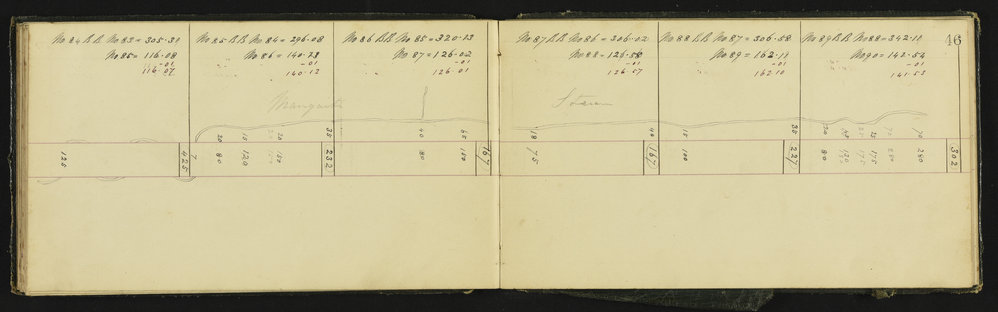 46
No 84 B.B. No 83 = 305.31
No 85 = 116.08
-.01
116.07
No 85 B.B. No 84 = 296.08
No 86 = 140.13
-.01
140.12
No 86 B.B. No 85 = 320.13
No 87 = 126.02
-.01
126.01
No 87 B.B. No 86 = 306.02
No 88 = 126.58
-.01
126.57
No 88 B.B. No 87 = 306.58
No 89 = 162.11
-.01
162.10
No 89 B.B. No 88 = 342.11
No 90 = 141.54
-.01
141.53
Stream
20 15 20 35 40 65 18 40 15 35 20 15 70
125 425 7 80 120 150 232 80 150 167 75 167 100 227 80 120 175 280 302